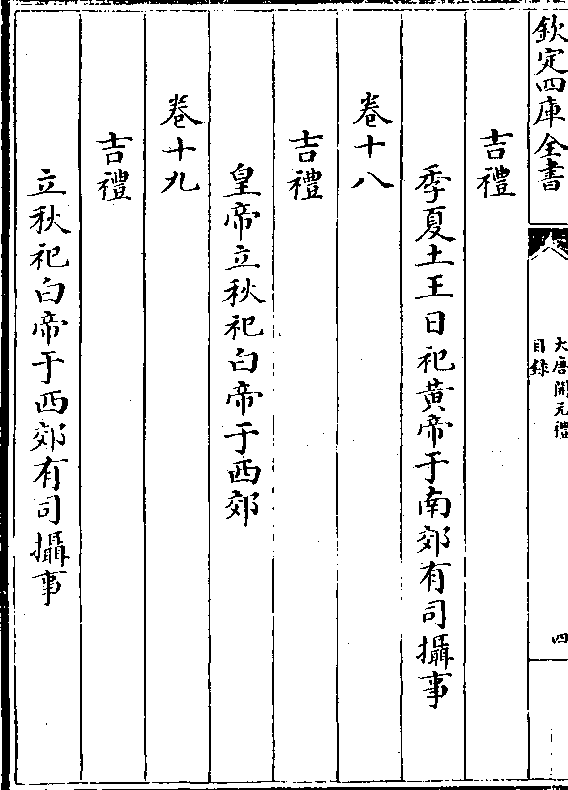 欽定四庫全書
大唐開元禮
目錄
四
吉禮
季夏土王日祀黃帝于南郊有司攝事
卷十八
吉禮
皇帝立秋祀白帝于西郊
卷十九
吉禮
立秋祀白帝于西郊有司攝事